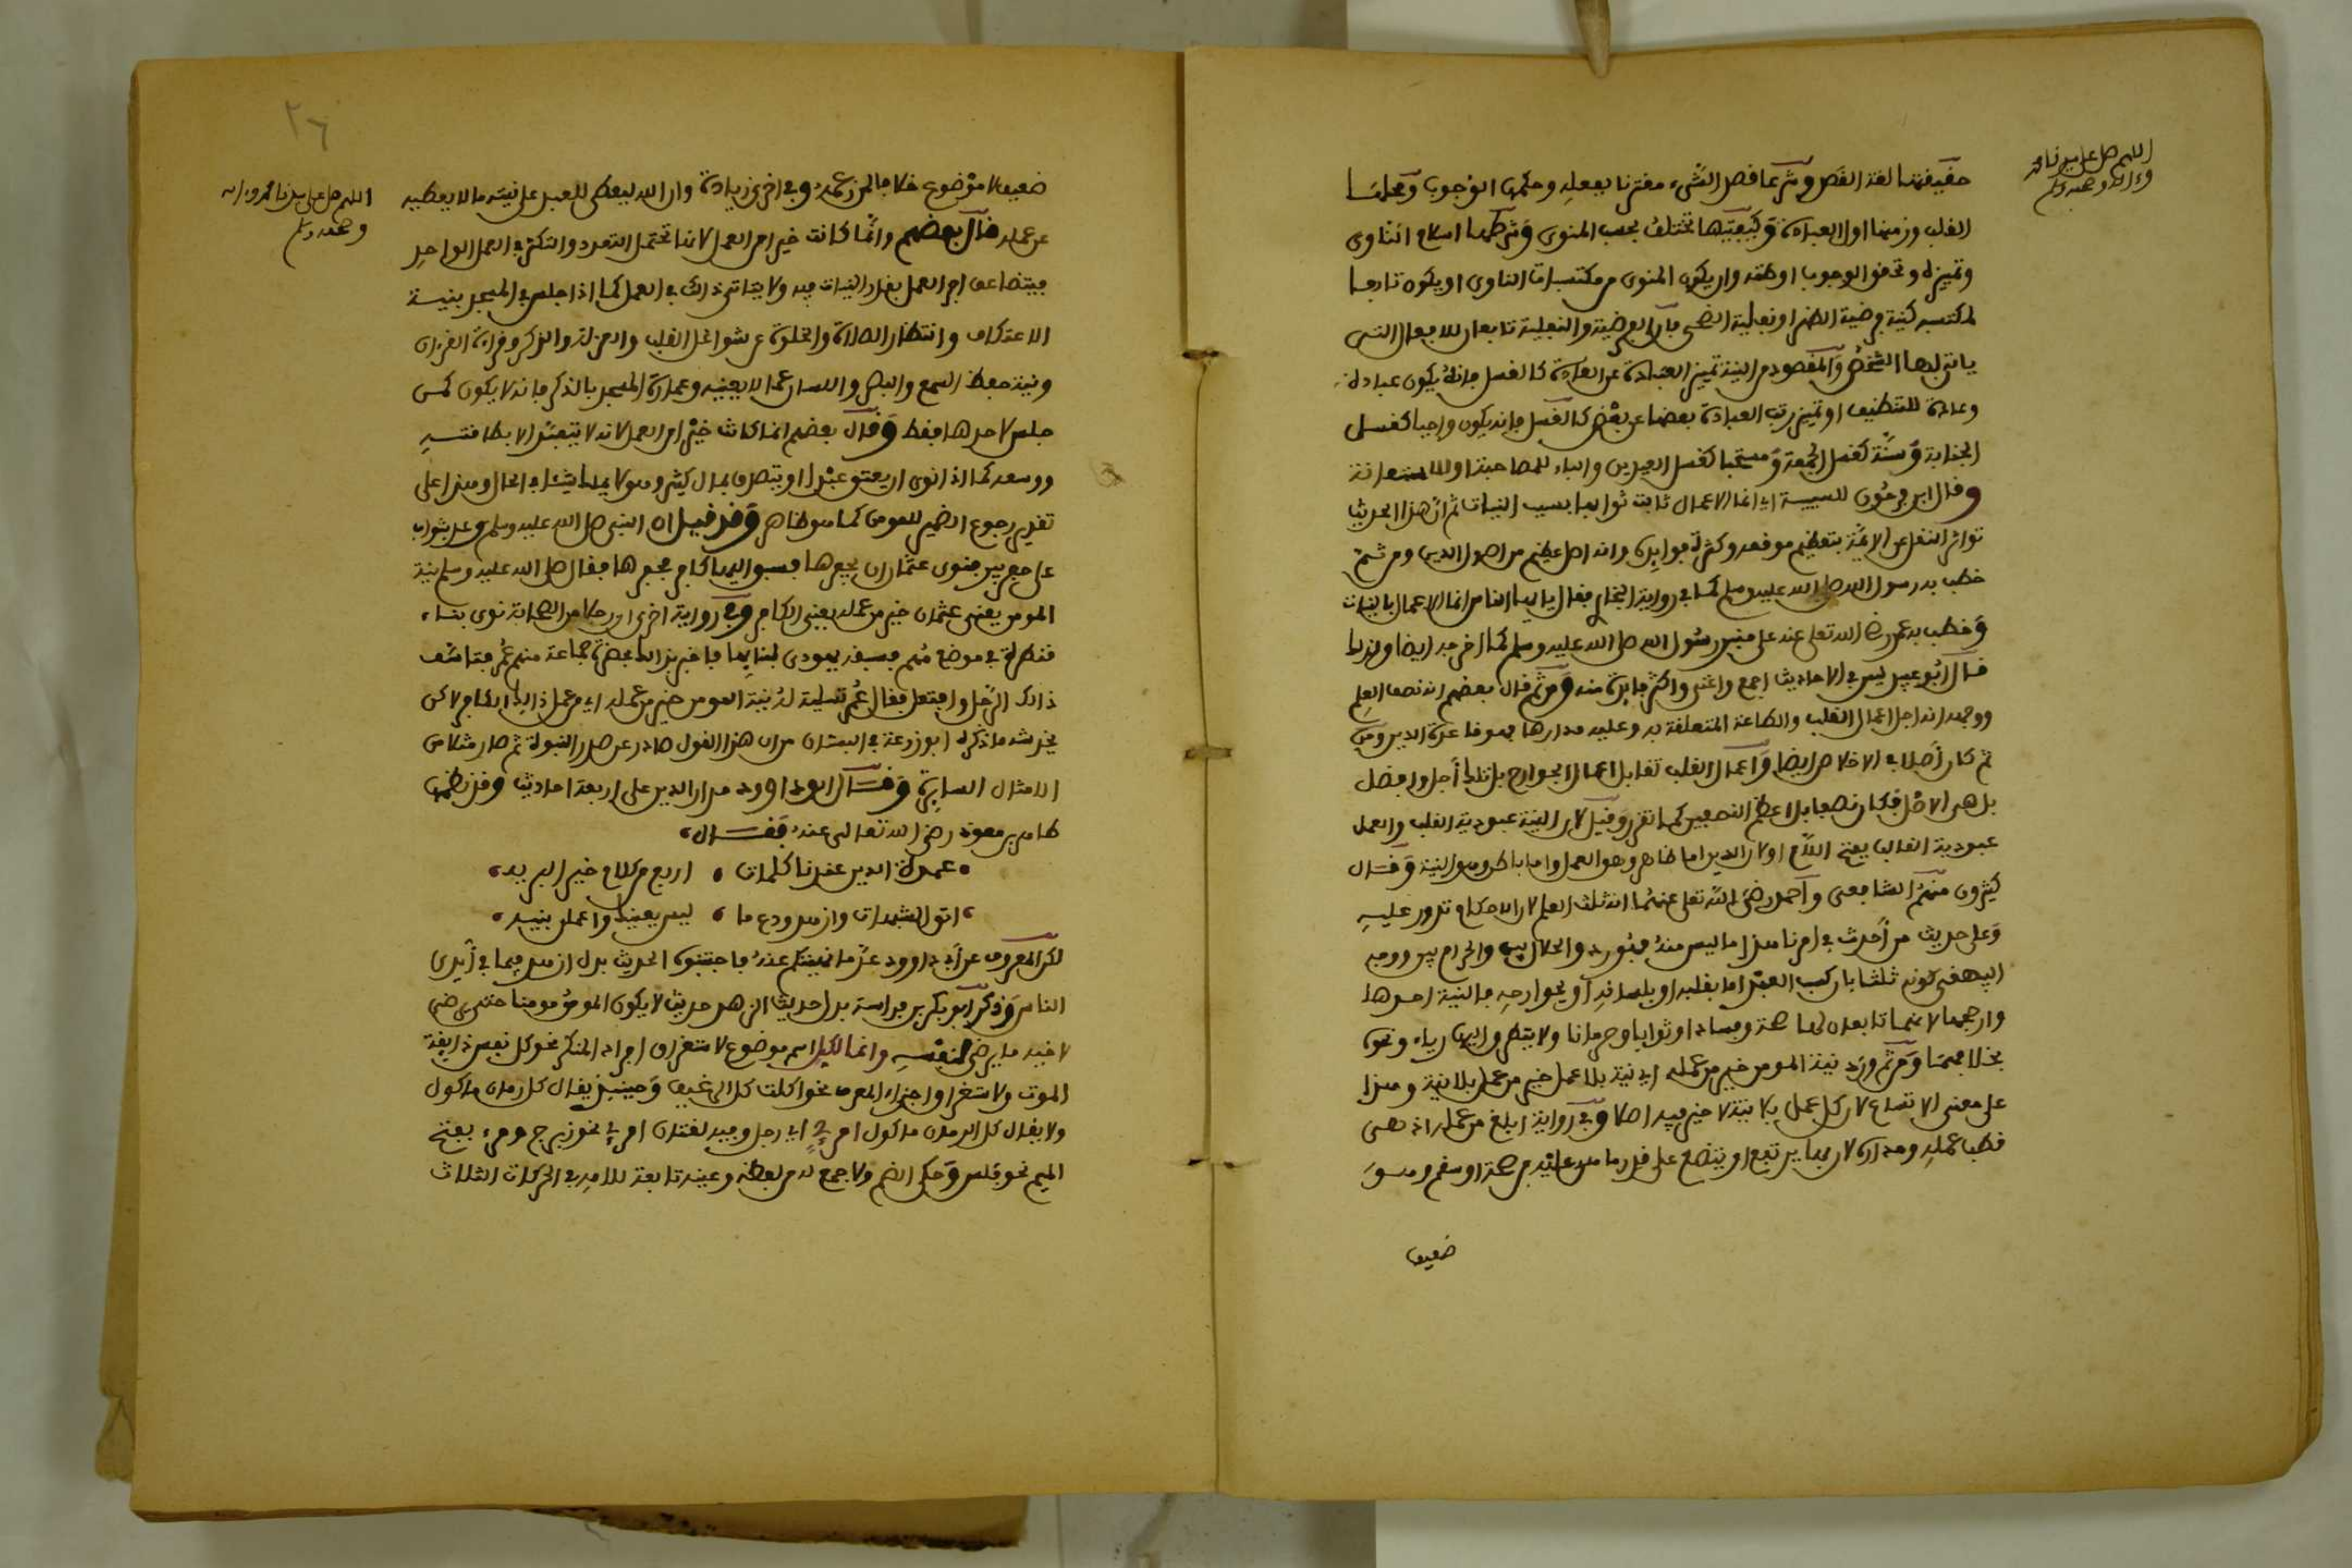 اللهم صل على سيدنا محمد
وءاله وصحبه وسلم
حقيقتها لغة القصد وشرعا قصد الشيء مقترنا بفعله وحكمها الوجوب ومحلها
القلب وزمنها اول العبادة وكيفيتها تختلف بحسب المنوي وشرطها اسلام الناوي
وتمييزه وتحقق الوجوب او ظنه وان يكون المنوي من مكتسبات الناوي او يكون تابعا
لمكتسبه كنية فرضية الظهر او نفلية الضحى فان الفرضية والنفلية تابعان للافعال التي
ياتي بها الشخص والمقصود من النية تمييز العبادة عن العادة كالغسل فانه يكون عبادة
وعادة للتنظيف او تمييز رتب العبادة بعضها عن بعض كالغسل فانه يكون واجبا كغسل
الجنابة وسنة كغسل الجمعة ومستحبا كغسل العيدين والباء للمصاحبة او للاستعانة
وقال ابن فرحون للسببية اي انما الاعمال ثابت ثوابها بسبب النيات ثم ان هذا الحديث
تواتر النقل عن الايمة بتعظيم موقعه وكثرة فوايده وانه اصل عظيم من اصول الدين ومن ثم
خطب به رسول الله صلى الله عليه وسلم كما في رواية البخاري فقال يا ايها الناس انما الاعمال بالنيات
وخطب به عمر رضي الله تعلى عنه على منبر رسول الله صلى الله عليه وسلم كما اخرجه ايضا ولذلك
قال ابو عبيد ليس في الاحاديث اجمع واغنى واكثر فايدة منه ومن ثم قال بعضهم انه نصف العلم
ووجهه انه اجل اعمال القلب والطاعة المتعلقة به وعليه مدارها فهو قاعدة الدين ومن
ثم كان اصلا في الاخلاص ايضا واعمال القلب تقابل اعمال الجوارح بل تلك اجل وافضل
بل هي الاصل فكان نصفا بل اعظم النصفين كما تقرر وقيل لان النية عبودية القلب والعمل
عبودية القالب بفتح اللام او لان الدين اما ظاهر وهو العمل واما باطن وهو النية وقال
كثيرون منهم الشافعي واحمد رضي الله تعلى عنهما انه ثلث العلم لان الاحكام تدور عليه
وعلى حديث من احدث في امرنا هذا ما ليس منه فهو رد والحلال بين والحرام بين ووجه
البيهقي كونه ثلثا بان كسب العبد اما بقلبه او بلسانه او بجوارحه فالنية احدها
وارجحها لانهما تابعان لها صحة وفسادا وثوابا وحرمانا ولا يتطرق اليها رياء ونحوه
بخلافهما ومن ثم ورد نية المومن خير من عمله اي نية بلا عمل خير من عمل بلا نية وهذا
على معنى الاتساع لان كل عمل بلا نية لا خير فيه اصلا وفي رواية ابلغ من عمله اذ هي
قطب عمله ومداره لان بها يرتفع او يتضع على قدر ما هو عليه من صحة او سقم وهو
ضعيف
٢٦
اللهم صل على سيدنا محمد وءاله
وصحبه وسلم
ضعيف لا موضوع خلافا لمن زعمه وفي اخرى زيادة وان الله ليعطي للعبد على نيته ما لا يعطيه
عن عمله قال بعضهم وانما كانت خيرا من العمل لانها تحتمل التعدد والتكثر في العمل الواحد
فيتضاعف اجر العمل بقدر النيات فيه ولا يتاتى ذلك في العمل كما اذا جلس في المسجد بنية
الاعتكاف وانتظار الصلاة والخلوة عن شواغل القلب والعزلة والذكر وقراءة القرءان
ونية حفظ السمع والبصر واللسان عما لا يعنيه وعمارة المسجد بالذكر فانه لا يكون كمن
جلس لاحدها فقط وقال بعضهم انما كانت خيرا من العمل لانه لا يتقيد الا بطاقته
ووسعه كما اذا نوى ان يعتق عبدا او يتصدق بمال كثير وهو لا يملك شيئا في الحال وهذا على
تقدير رجوع الضمير للمومن كما هو ظاهر وقد قيل ان النبي صلى الله عليه وسلم وعد بثواب
على حفر بير فنوى عثمان ان يحفرها فسبق اليها كافر فحفرها فقال صلى الله عليه وسلم نية
المومن يعني عثمان خير من عمله يعني الكافر وفي رواية اخرى ان رجلا من الصحابة نوى بناء
قنطرة في موضع مهم فسبقه يهودي لبنايها فاخبر بذلك بحضرة جماعة منهم عمر فتاسف
ذلك الرجل واغتم فقال عمر تسلية له نية المومن خير من عمله اي من عمل ذلك الكافر لكن
يخدشه ما ذكره ابو زرعة في البستان من ان هذا القول صادر عن صدر النبوة ثم صار مثلا من
الامثال السايرة وقال ابو داوود مدار الدين على اربعة احاديث وقد نظمها
طاهر بن معوذ رضي الله تعالى عنه فقال
عمدة الدين عندنا كلمات • اربع من كلام خير البريه
اتق الشبهات وازهد ودع ما • ليس يعنيك واعملن بنيه
لكن المعروف عن ابي داوود عد ما نهيتكم عنه فاجتنبوه الحديث بدل ازهد فيما في ايدي
الناس وذكر ابو بكر بن داسة بدل حديث الزهد حديث لا يكون المومن مومنا حتى يرضى
لاخيه ما يرضى لنفسه وانما لكل اسم موضوع لاستغراق افراد المنكر نحو كل نفس ذايقة
الموت ولاستغراق اجزاء المعرف نحو اكلت كل الرغيف وحينئذ يقال كل رمان ماكول
ولا يقال كل الرمان ماكول امرئ اي رجل وفيه لغتان امرئ نحو زبرج ومرء بفتح
الميم نحو فلس وحكي الضم ولا جمع له من لفظه وعينه تابعة للامه في الحركات الثلاث